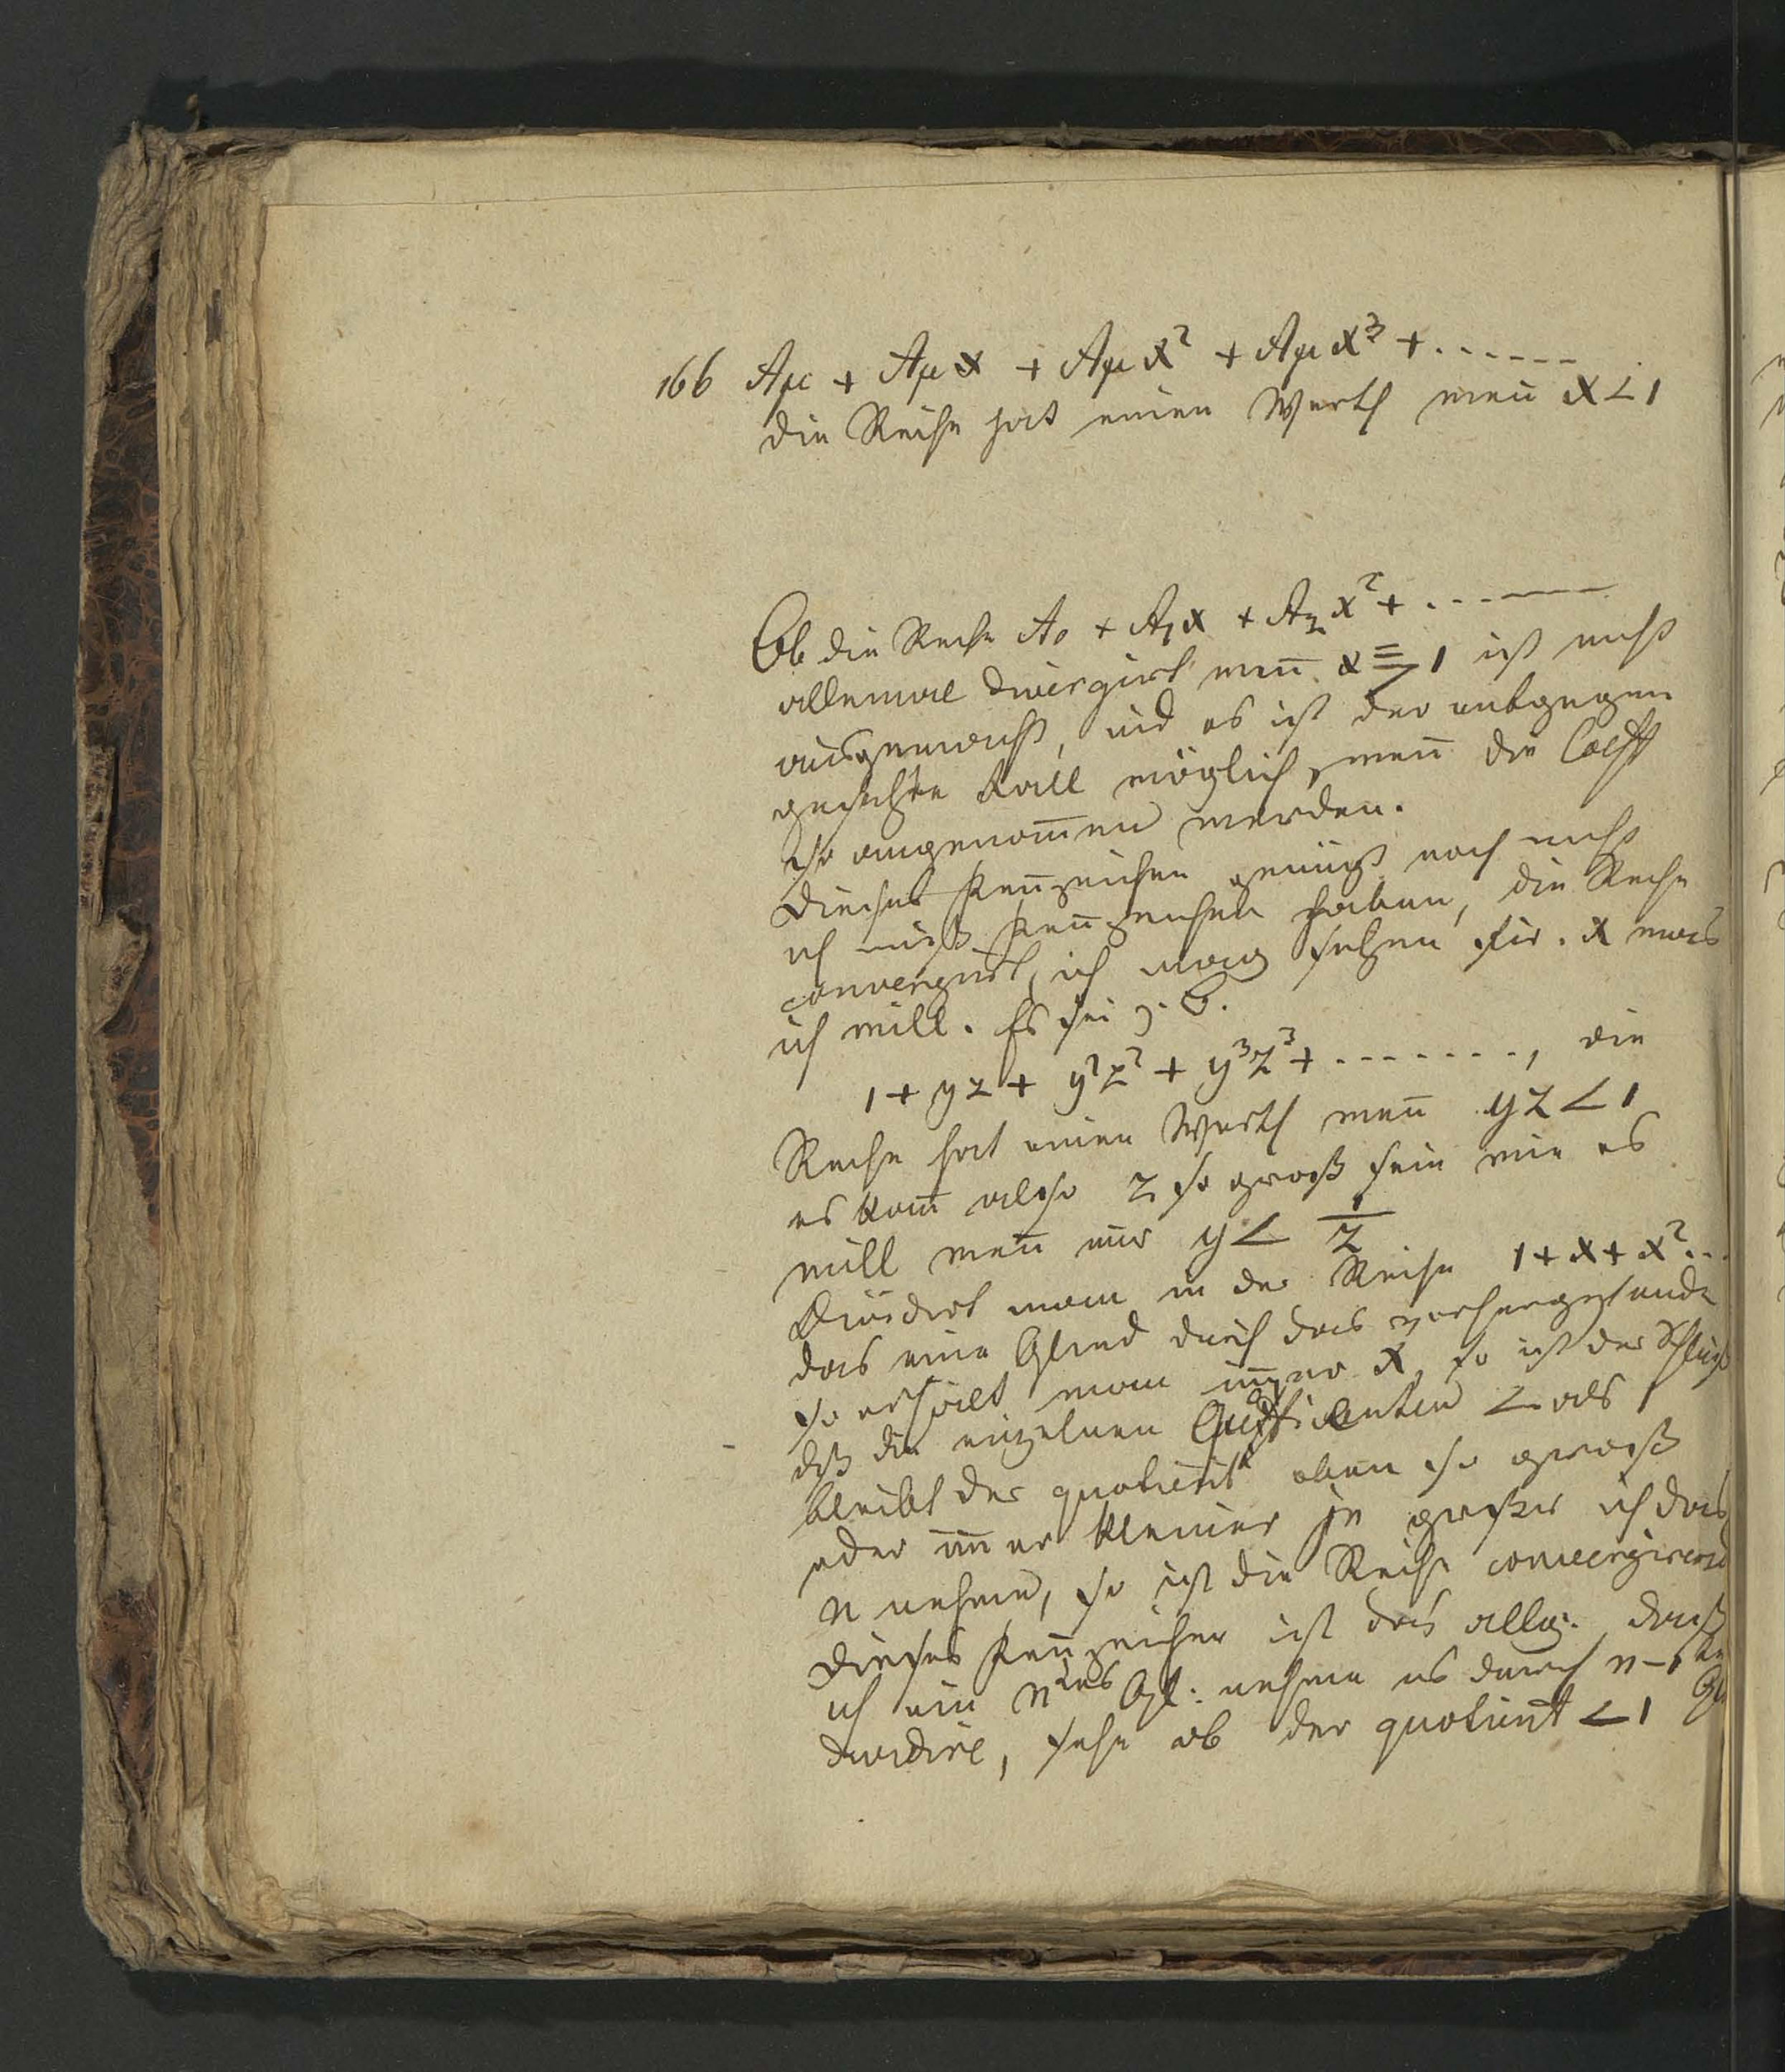 166 Aμ + Aμx + Aμx² + Aμx³ + . . . . . .
die Reihe hat einen Werth wen̄ x < 1
Ob die Reihe A₀ + A₁x + A₂x² + . . . . . .
allemal divergirt wen̄ x ⋝ 1 ist nicht
ausgemacht, und es ist der entgegen
gesetzte Fall möglich, wen̄ die Coeff
so angenom̄en werden.
Dieses Ken̄zeichen genügt noch nicht
ich muß Ken̄zeichen haben, die Reihe
convergirt, ich mag setzen für x was
ich will. Es sei z. B.
1 + yz + y²z² + y³z³ + . . . . . . . , die
Reihe hat einen Werth wen̄ yz < 1
es kan̄ also z so groß sein wie es
will wen̄ nur y < 1/z
Dividirt man in der Reihe 1 + x + x² . . .
das eine Glied durch das vorhergehende
so erhält man im̄er x, so ist der Schluß
dß die einzelnen < als 1
bleibt der quotient eben so groß
oder im̄er kleiner je größer ich das
n nehme, so ist die Reihe convergirend
Dieses Ken̄zeichen ist das allg. daß
ich ein ntes Gl: nehme es durch n-1te Gl
dividire, sehe ob der quotient < 1